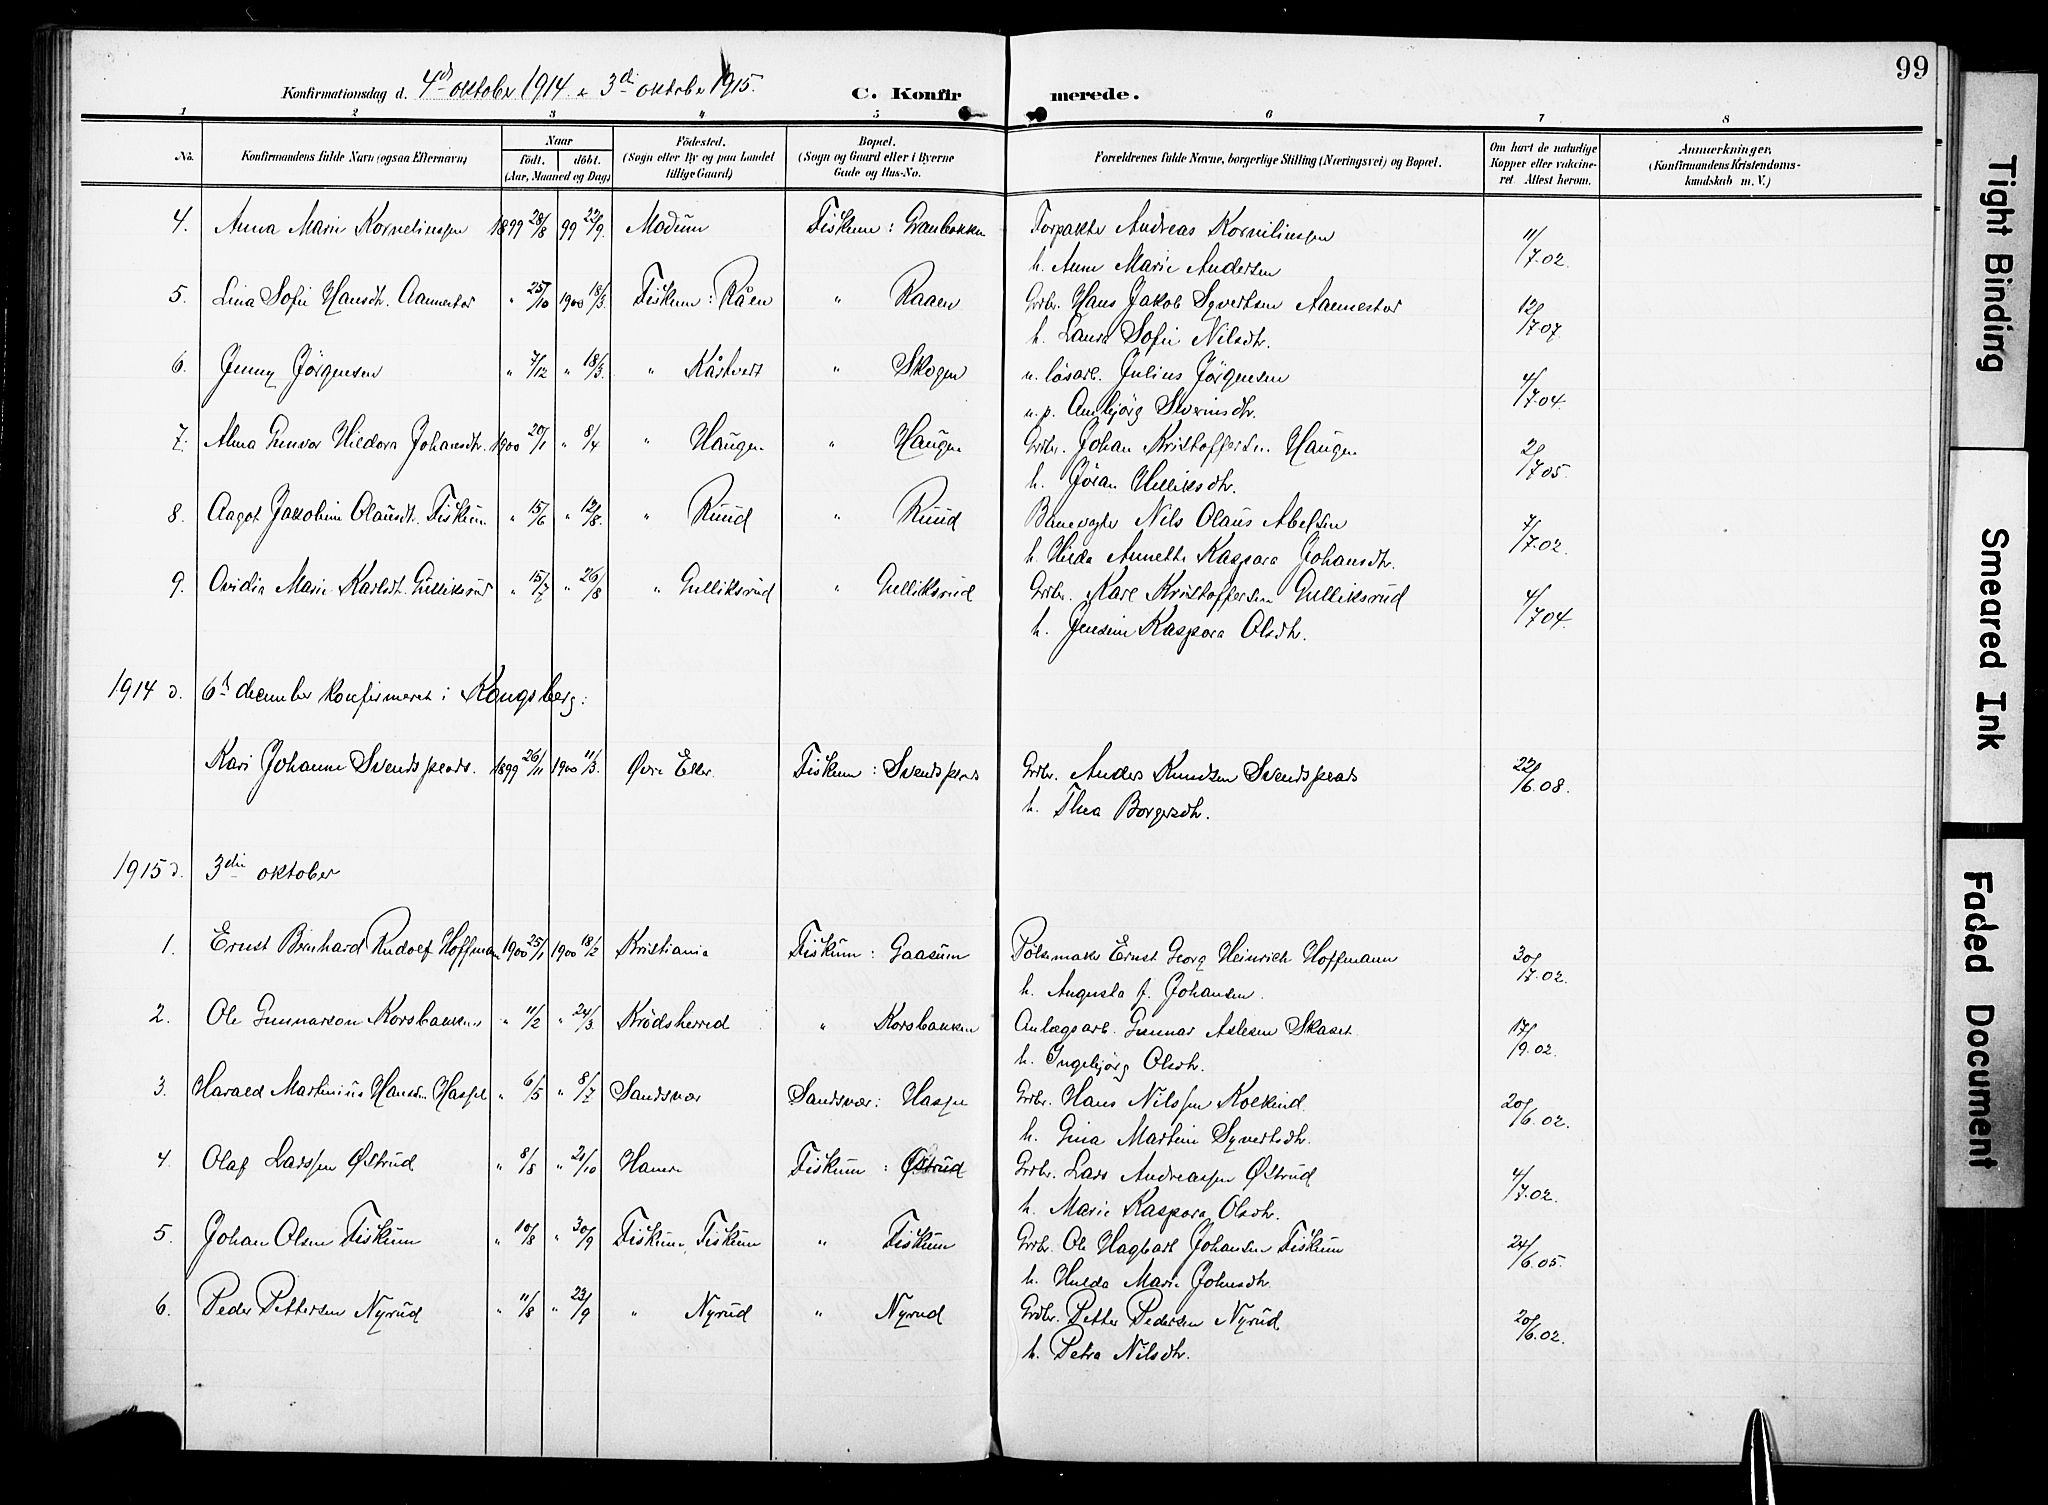 99
Konfirmationsdag d. 4de oktober 1914 & 3die oktober 1915.
C. Konfirmerede.
1 2 3 4 5 6 7 8
No. Konfirmandens fulde Navn (ogsaa Efternavn) Naar født. døbt. (Aar, Maaned og Dag) Fødested. (Sogn eller By og paa Landet tillige Gaard) Bopæl. (Sogn og Gaard eller i Byerne Gade og Hus-No. Forældrenes fulde Navne, borgerlige Stilling (Næringsvei) og Bopæl. Om havt de naturlige Kopper eller vaccineret. Attest herom. Anmærkninger, (Konfirmandens Kristendomskundskab m. V.)
4. Anna Marie Kornelinssen 1899 28/8 99 22/9. Modum Fiskum: Granbakken Forpakter Andreas Kornilinssen 11/7.02.
h. Anne Marie Andersen
5. Lina Sofie Hansdtr. Aannestad " 25/10 1900 18/3. Fiskum: Råen " Raaen Grdbr. Hans Jakob Syvertsen Aannestad 12/7 07.
h. Laura Sofie Nilsdtr.
6. Jenny Jörgensen " 7/12 " 18/3. " Kårtvedt " Skogen u. lösarb. Julius Jörgensen 4/7.04.
u. p. Anbjörg Severinsdtr.
7. Alma Gunvor Hildora Johansdtr. 1900 20/1 " 8/4 " Haugen " Haugen Grdbr. Johan Kristoffersen Haugen 2/7 05.
h. Jöran Helliksdtr.
8. Aagot Jakobine Olausdt. Fiskum " 15/6 " 12/8. " Ruud " Ruud Banevogter Nils Olaus Abelsen 7/7.02.
h. Hilda Annette Kaspara Johansdtr.
9. Ovidia Marie Karlsdt. Gulliksrud " 15/7 " 26/8 " Gulliksrud " Gulliksrud Grdbr. Karl Kristoffersen Gulliksrud 4/7 04.
h. Jensine Kaspara Olsdtr.
1914 d. 6te december konfirmeret i Kongsberg:
Kari Johanne Svendsplads. 1899 26/11 1900 11/3. Øvre Eker. Fiskum: Svendsplads Grdbr. Anders Knudsen Svendsplads 22/6.08.
h. Thea Borgersdtr.
1915 d. 3die oktober
1. Ernst Bernhard Rudolf Hoffmann 1900 25/1 1900 18/2 Kristiania Fiskum: Gaasum Pölsemaker Ernst Georg Heinrich Hoffmann 30/7.02.
h. Augusta f. Johansen.
2. Ole Gunnarson Korsbakken " 11/2 " 24/3 Krödsherred " Korsbakken Anlægsarb. Gunnar Aslesen Skaset 17/9.02.
h. Ingebjörg Olsdtr.
3. Harald Martinius Hansen Haspe " 6/5 " 8/7 Sandsvær Sandsvær: Haspe Grdbr. Hans Nilssen Kolkind. 20/6.02.
h. Gina Martine Syvertsdtr.
4. Olaf Larssen Østrud " 8/8 " 21/10 Fiskum: Østrud Grdbr. Lars Andreassen Østrud 4/7.02.
h. Marie Kaspara Olsdtr.
5. Johan Olsen Fiskum " 10/8 " 30/9 Fiskum, Fiskum " Fiskum Grdbr. Ole Hagbart Johansen Fiskum 24/6.05.
h. Hulda Marie Johnsdtr.
6. Peder Pettersen Nyrud " 11/8 " 23/9 " Nyrud " Nyrud Grdbr. Petter Pedersen Nyrud 20/6.02.
h. Petra Nilsdtr.
Tight Binding
Smeared Ink
Faded Document